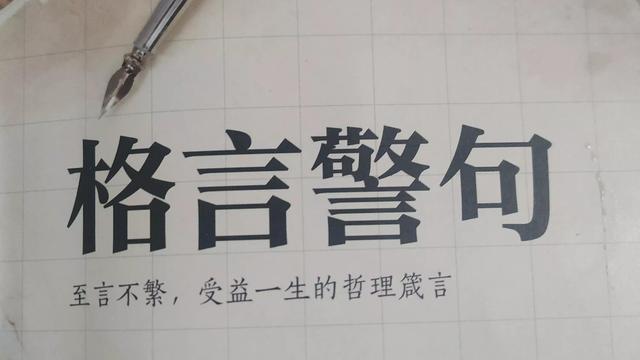 格言警句
至言不繁，受益一生的哲理箴言